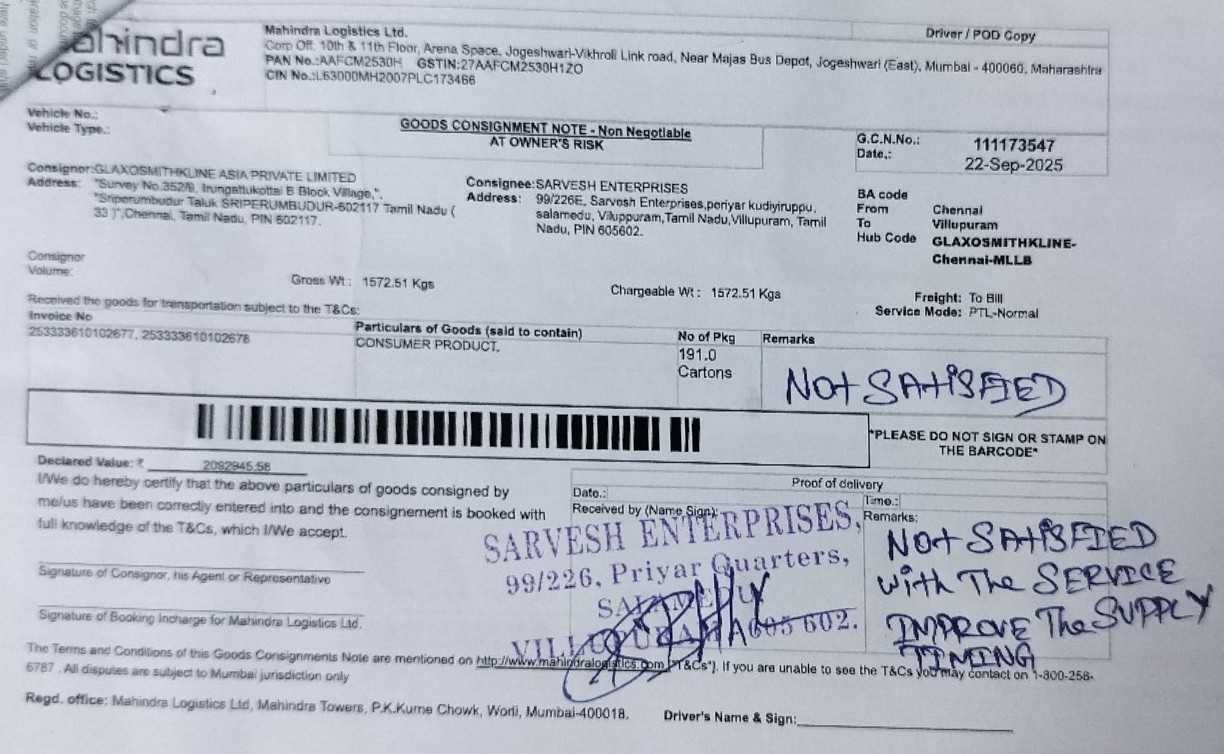 Mahindra
LOGISTICS
Mahindra Logistics Ltd.
Corp Off: 10th & 11th Floor, Arena Space, Jogeshwari-Vikhroli Link road, Near Majas Bus Depot, Jogeshwari (East), Mumbai - 400060, Maharashtra
PAN No.:AAFCM2530H GSTIN:27AAFCM2530H1ZO
CIN No.:L63000MH2007PLC173466
Driver / POD Copy
Vehicle No.:
Vehicle Type.:
GOODS CONSIGNMENT NOTE - Non Negotiable
AT OWNER'S RISK
G.C.N.No.: 111173547
Date.: 22-Sep-2025
Consignor:GLAXOSMITHKLINE ASIA PRIVATE LIMITED
Address: "Survey No.352/9, Irungattukottai B Block Village,",
"Sriperumbudur Taluk SRIPERUMBUDUR-602117 Tamil Nadu (
33 )",Chennai, Tamil Nadu, PIN 602117.
Consignee:SARVESH ENTERPRISES
Address: 99/226E, Sarvesh Enterprises,periyar kudiyiruppu,
salamedu, Viluppuram,Tamil Nadu,Villupuram, Tamil
Nadu, PIN 605602.
BA code
From Chennai
To Villupuram
Hub Code GLAXOSMITHKLINE-
Chennai-MLLB
Consignor
Volume:
Gross Wt : 1572.51 Kgs
Chargeable Wt : 1572.51 Kgs
Freight: To Bill
Service Mode: PTL-Normal
Received the goods for transportation subject to the T&Cs:
Invoice No
253333610102677, 253333610102678
Particulars of Goods (said to contain)
CONSUMER PRODUCT.
No of Pkg
191.0
Cartons
Remarks
NOt SAtiSFIED
*PLEASE DO NOT SIGN OR STAMP ON
THE BARCODE*
Declared Value: ₹ 2092945.58
I/We do hereby certify that the above particulars of goods consigned by
me/us have been correctly entered into and the consignement is booked with
full knowledge of the T&Cs, which I/We accept.
Signature of Consignor, his Agent or Representative
Signature of Booking Incharge for Mahindra Logistics Ltd.
Proof of delivery
Date.:
Time.:
Received by (Name Sign):
Remarks:
SARVESH ENTERPRISES,
99/226, Priyar Quarters,
SALAMEDU
605 602.
NOt SAtiSFIED
with The SERVICE
IMPROVE The SUPPLY
TIMING
The Terms and Conditions of this Goods Consignments Note are mentioned on http://www.mahindralogistics.com T&Cs"). If you are unable to see the T&Cs you may contact on 1-800-258-
6787 . All disputes are subject to Mumbai jurisdiction only
Regd. office: Mahindra Logistics Ltd, Mahindra Towers, P.K.Kurne Chowk, Worli, Mumbai-400018.
Driver's Name & Sign: